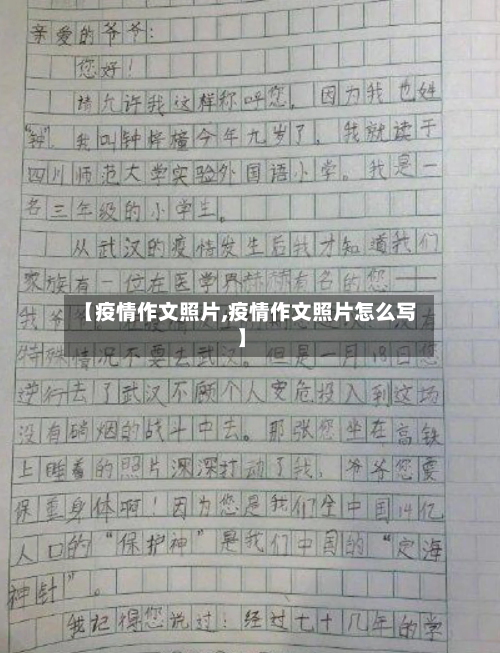 亲爱的爷爷:
您好!
请允许我这样称呼您,因为我也姓
"钟",我叫钟梓橦今年九岁了,我就读于
四川师范大学实验外国语小学。我是一
名三年级的小学生。
从武汉的疫情发生后我才知道我们
家族有一位在医学界赫赫有名的您——
【疫情作文照片,疫情作文照片怎么写
】
特殊情况不要去武汉。但是一月18日您
逆行去了武汉不顾个人安危投入到这场
没有硝烟的战斗中去。那张您坐在高铁
上睡着的照片深深打动了我,爷爷您要
保重身体啊!因为您是我们全中国14亿
人口的"保护神"是我们中国的"定海
神针"。
我记得您说过:经过七十几年的学